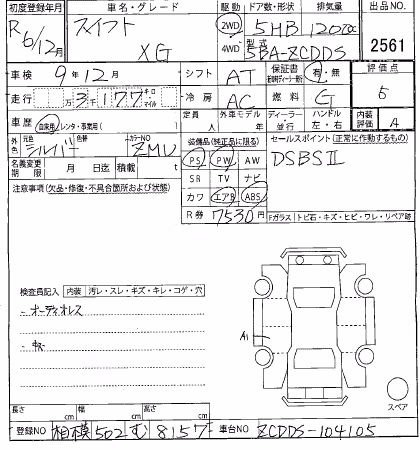 初度登録年月 車名・グレード 駆動 ドア数・形状 排気量 出品NO.
R6/12月 スイフト XG 2WD 5HB 1200cc 2561
4WD 型式 5BA-ZCDDS
車検 9年12月 シフト AT 保証書 有・無 評価点
走行 万3千177キロ マイル 冷房 AC 燃料 G 5
車歴 自家用 レンタ・事業用( ) 定員 人 外車モデル 年 ディーラー 並行 ハンドル 左・右 内装評価 A
外色 元色 シルバー 色替 カラーNO ZMU 装備品(純正品に限る) セールスポイント(正常に作動するもの)
名義変更期限 月 日迄 積載 t PS PW AW DSBSⅡ
注意事項(欠品・修復・不具合箇所および状態) SR TV ナビ
カワ エアB ABS
R券 7530円 Fガラス トビ石・キズ・ヒビ・ワレ・リペア跡
検査員記入 内装 汚レ・スレ・キズ・キレ・コゲ・穴
- オーディオレス
A1
スペア
長さ cm 幅 cm 高さ cm
登録NO 相模502む8157 車台NO ZCDDS-104105